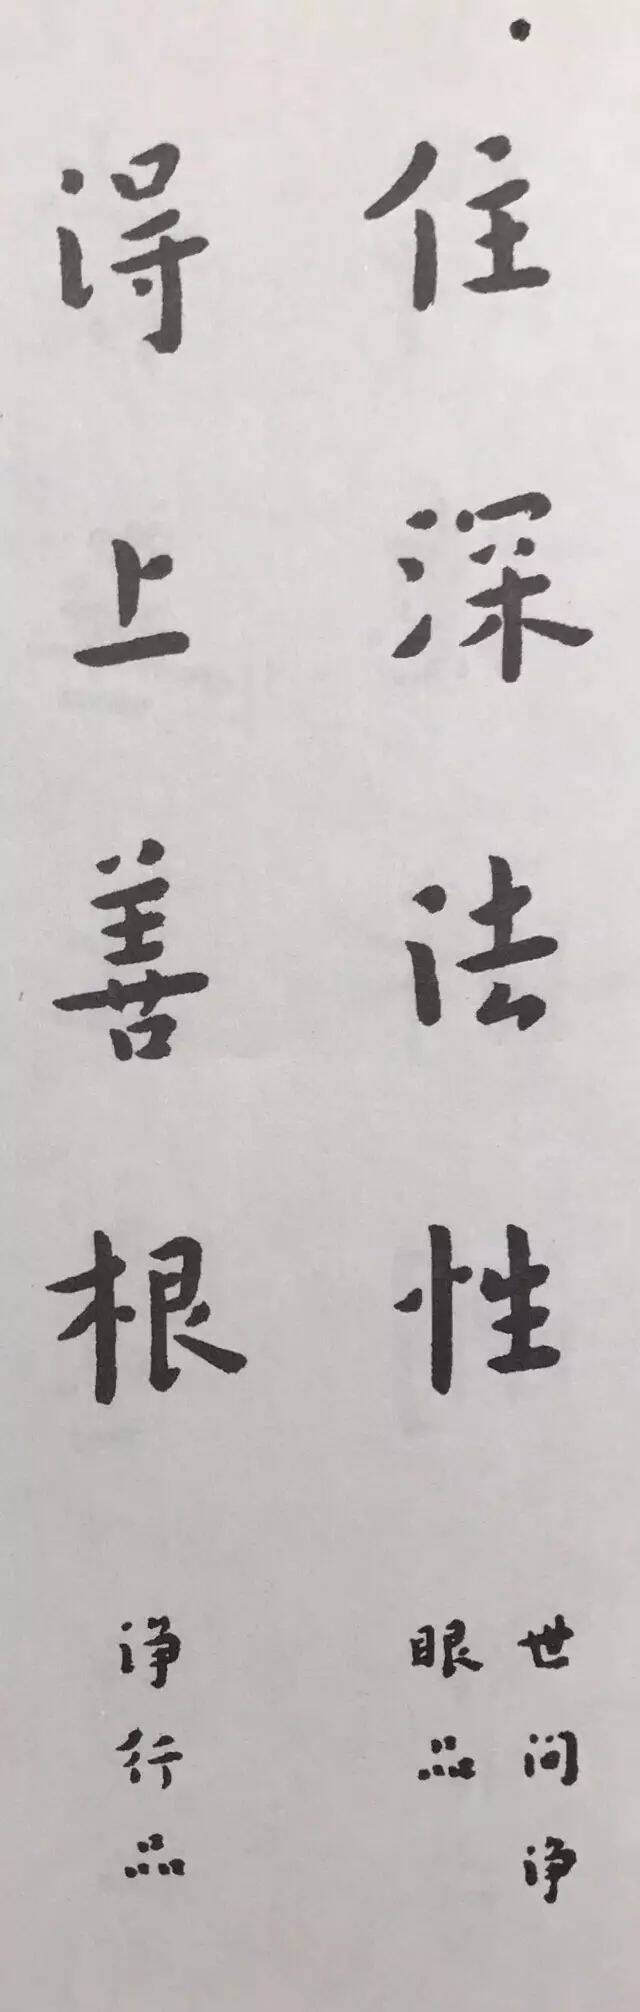 住深法性
世间净
眼品
得上善根
净行品